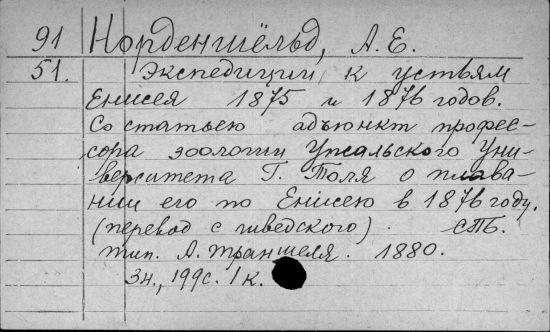 91 Норденшёльд, А.Е.
51. Экспедиции к устьям
Енисея 1875 и 1876 годов.
Со статьею адъюнкт профес-
сора зоологии Упсальского Уни-
верситета Г. Толя о плава-
нии его по Енисею в 1876 году.
(перевод с шведского). СПб.
тип. А. Траншеля. 1880.
3н., 199с. 1 к.